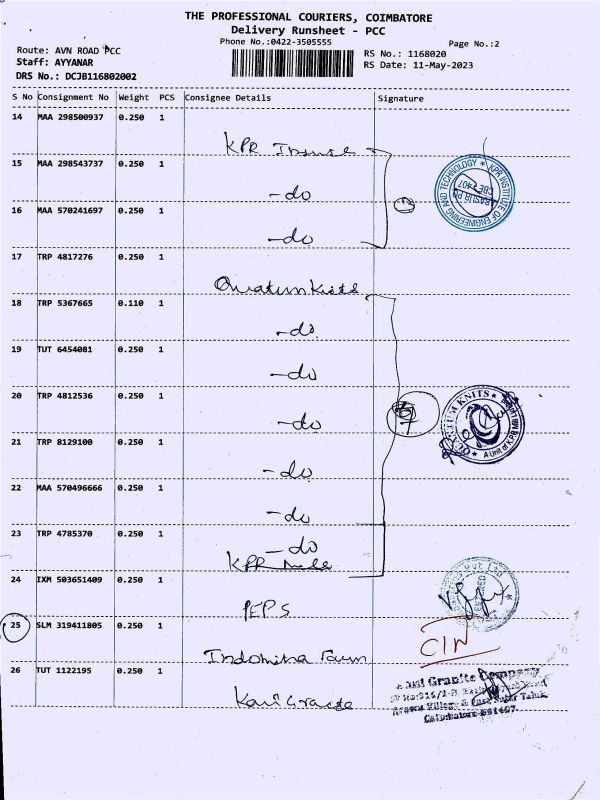 THE PROFESSIONAL COURIERS, COIMBATORE
Delivery Runsheet - PCC
Phone No.:0422-3505555
Page No.:2
Route: AVN ROAD PCC
RS No.: 1168020
Staff: AYYANAR
RS Date: 11-May-2023
DRS No.: DCJB116802002
S No Consignment No Weight PCS Consignee Details Signature
14 MAA 298500937 0.250 1
KPR
15 MAA 298543737 0.250 1
-do
KPR INSTITUTE OF ENGINEERING AND TECHNOLOGY
16 MAA 570241697 0.250 1
-do
17 TRP 4817276 0.250 1
Quatum Knits
18 TRP 5367665 0.110 1
-do
19 TUT 6454081 0.250 1
-do
20 TRP 4812536 0.250 1
-do
7
QUANTUM KNITS
A Unit of K.P.R
21 TRP 8129100 0.250 1
-do
22 MAA 570496666 0.250 1
-do
23 TRP 4785370 0.250 1
-do
KPR Mill
24 IXM 503651409 0.250 1
PEPS
Pvt Ltd
25 SLM 319411805 0.250 1
26 TUT 1122195 0.250 1
Granite Company
Coimbatore